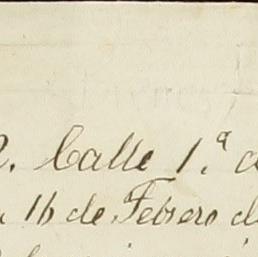 2. Calle 1.ª d
16 de Febrero d